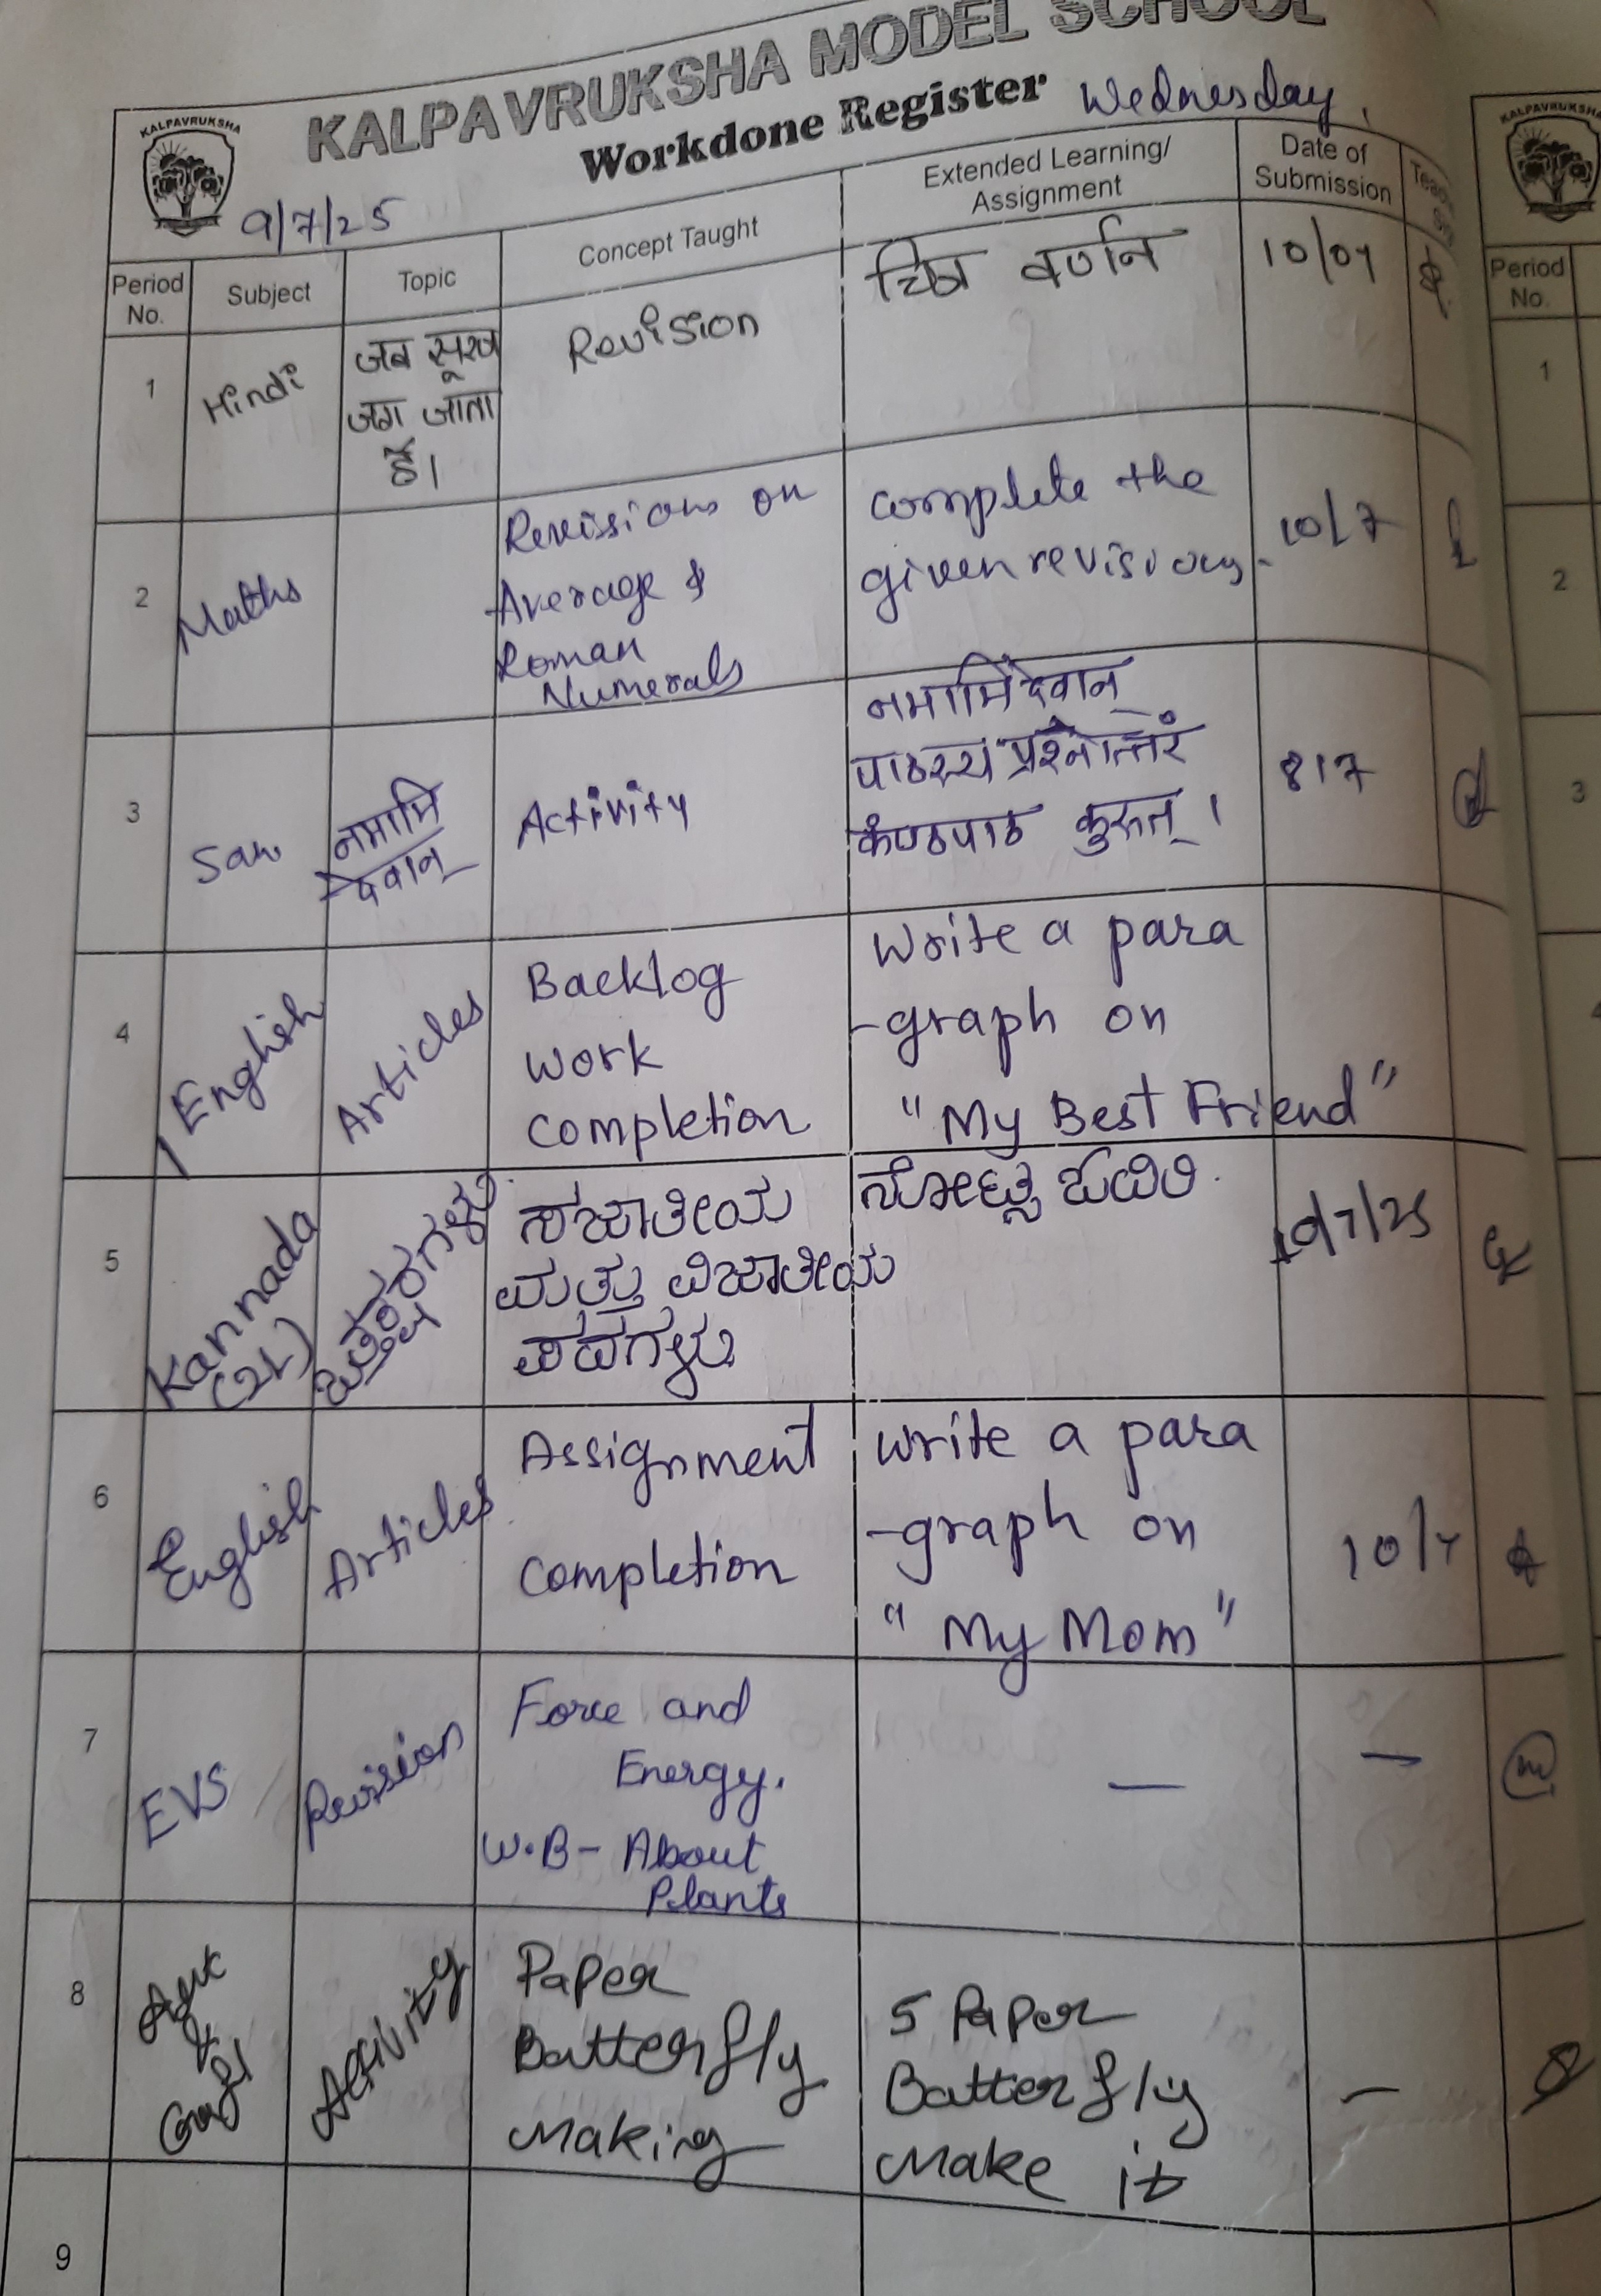 KALPAVRUKSHA MODEL SCHOOL
Workdone Register Wednesday
KALPAVRUKSHA
9/7/25
Period No. Subject Topic Concept Taught Extended Learning/ Assignment Date of Submission
1 Hindi जब सूरज Revision चित्र वर्णन 10/07
जग जाता
है।
2 Maths Revissions on complete the 10/7
Average & given revisions.
Roman
Numerals
3 San नमामि Activity नमामि देवान् 8/7
देवान् पाठस्य प्रश्नोत्तरं
कण्ठपाठ कुरुत्।
4 English Articles Backlog Write a para
work -graph on
completion "My Best Friend"
5 Kannada ಸಜಾತೀಯ ನೋಟ್ಸ್ ಓದಿರಿ. 10/7/25
(2L) ಮತ್ತು ವಿಜಾತೀಯ
ಪದಗಳು
6 English Articles Assignment write a para 10/7
completion -graph on
"My Mom"
7 EVS Revision Force and — —
Energy.
W.B- About
Plants
8 Art Activity Paper 5 Paper —
& Batterfly Batterfly
Craft Making Make it
9
KALPAVRUKSHA
Period
No.
1
2
3